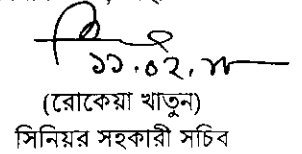 ১১.০২.১৮
(রোকেয়া খাতুন)
সিনিয়র সহকারী সচিব